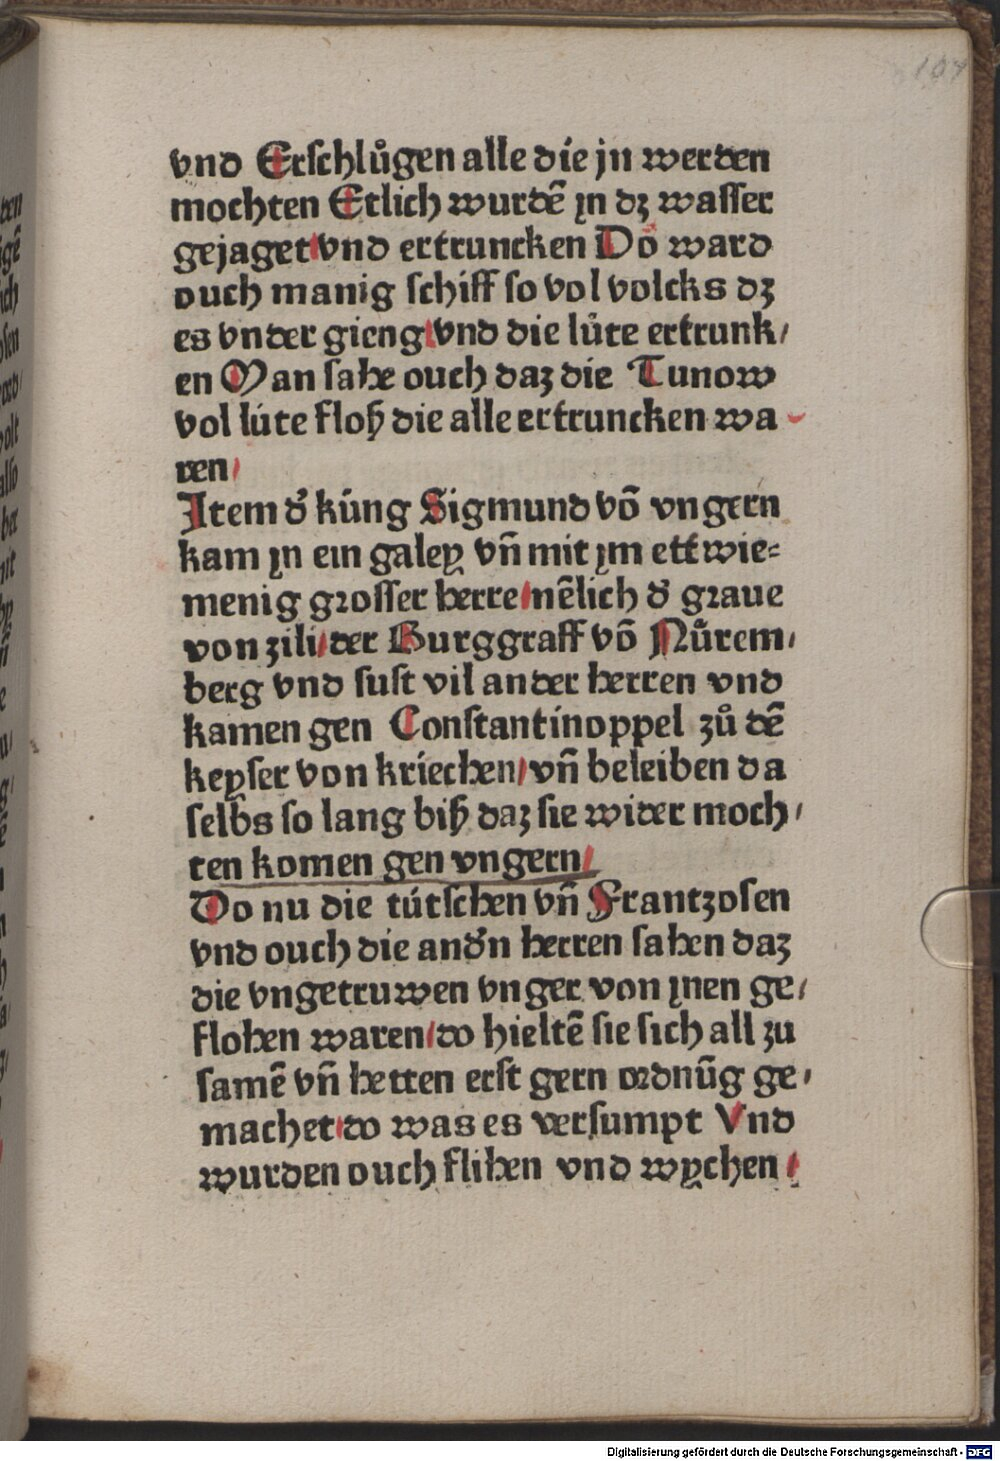 107
vnd Erſchlůgen alle die jn werden
mochten Etlich wurdē in dꝫ waſſer
gejaget/vnd ertruncken Do ward
ouch manig ſchiff ſo vol volcks dꝫ
es vnder gieng/vnd die lůte ertrunk/
en Man ſahe ouch daꝫ die Tunow
vol lúte floß die alle ertruncken wa
ren/
Item dˀ kúng Sigmund vō vngern
kam in ein galey vn̄ mit im ettwie=
menig groſſer herre/nēlich dˀ graue
von zili/der Burggraff vō Nůrem/
berg vnd ſuſt vil ander herren vnd
kamen gen Conſtantinoppel zů dē
keyſer von kriechen/vn̄ beleiben da
ſelbs ſo lang biß daꝫ ſie wider moch/
ten komen gen vngern/
Do nu die tútſchen vn̄ Frantzoſen
vnd ouch die andˀn herren ſahen daꝫ
die vngetruwen vnger von inen ge/
flohen waren/do hieltē ſie ſich all zu
ſamē vn̄ hetten erſt gern ordnūg ge/
machet/do was es verſumpt Vnd
wurden ouch flihen vnd wychen/
Digitalisierung gefördert durch die Deutsche Forschungsgemeinschaft - DFG